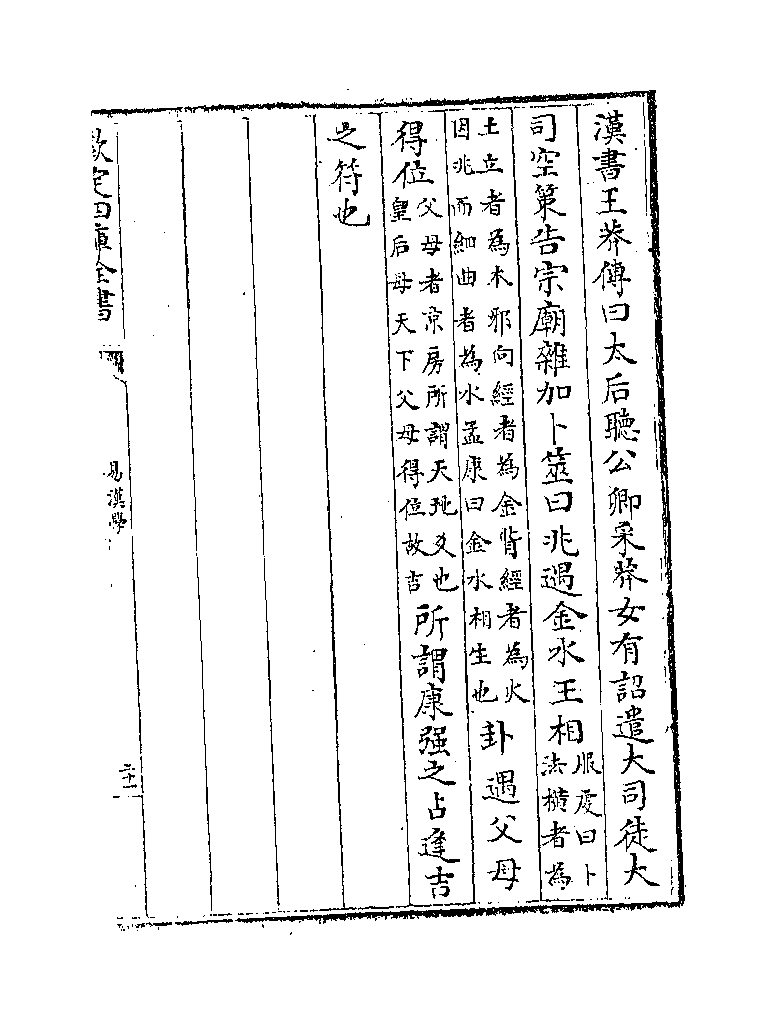 漢書王莽傳曰太后聽公卿采莽女有詔遣大司徒大
司空策告宗廟雜加卜筮曰兆遇金水王相服虔曰卜法橫者為
土立者為木邪向經者為金背經者為火因兆而細曲者為水孟康曰金水相生也卦遇父母
得位父母者京房所謂天地爻也皇后母天下父母得位故吉所謂康强之占逢吉
之符也
欽定四庫全書
易漢學
二十一